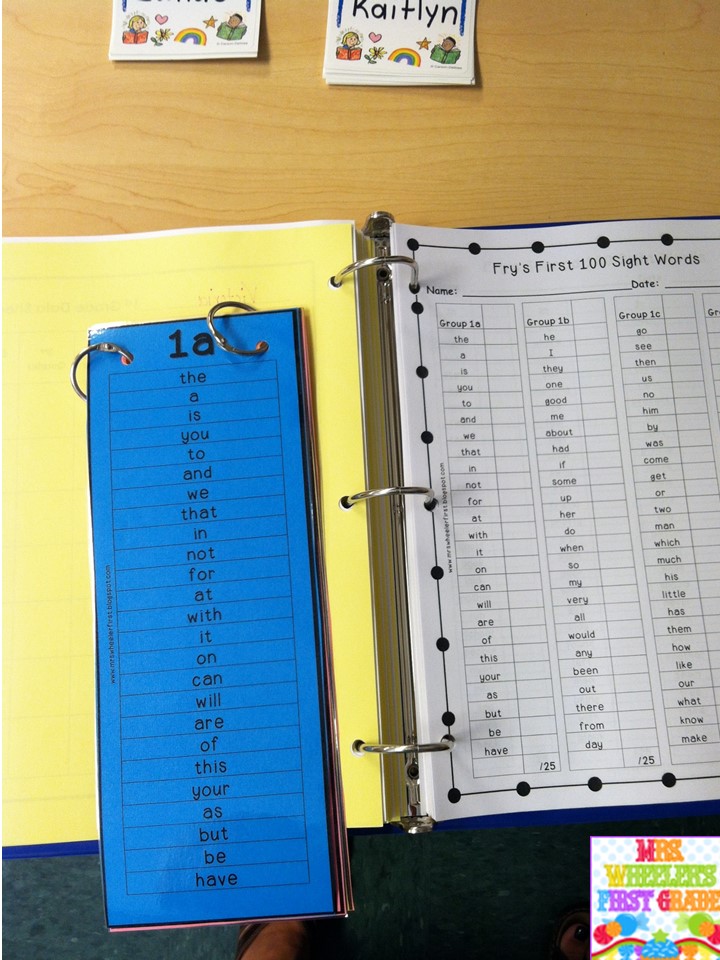 Kaitlyn
Fry's First 100 Sight Words
Name:
Date:
1a
the
a
is
you
to
and
we
that
in
not
for
at
with
it
on
can
will
are
of
this
your
as
but
be
have
www.mrswheelerfirst.blogspot.com
Group 1a
the
a
is
you
to
and
we
that
in
not
for
at
with
it
on
can
will
are
of
this
your
as
but
be
have
/25
Group 1b
he
I
they
one
good
me
about
had
if
some
up
her
do
when
so
my
very
all
would
any
been
out
there
from
day
/25
Group 1c
go
see
then
us
no
him
by
was
come
get
or
two
man
which
much
his
little
has
them
how
like
our
what
know
make
www.mrswheelerfirst.blogspot.com
MRS.
WHEELER'S
FIRST GRADE